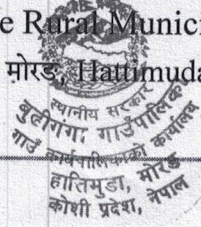 e Rural Munici
मोरङ, Hattimuda
स्थानीय सरकार
बुढीगंगा गाउँपालिका
गाउँ कार्यपालिकाको कार्यालय
हात्तिमुडा, मोरङ
कोशी प्रदेश, नेपाल